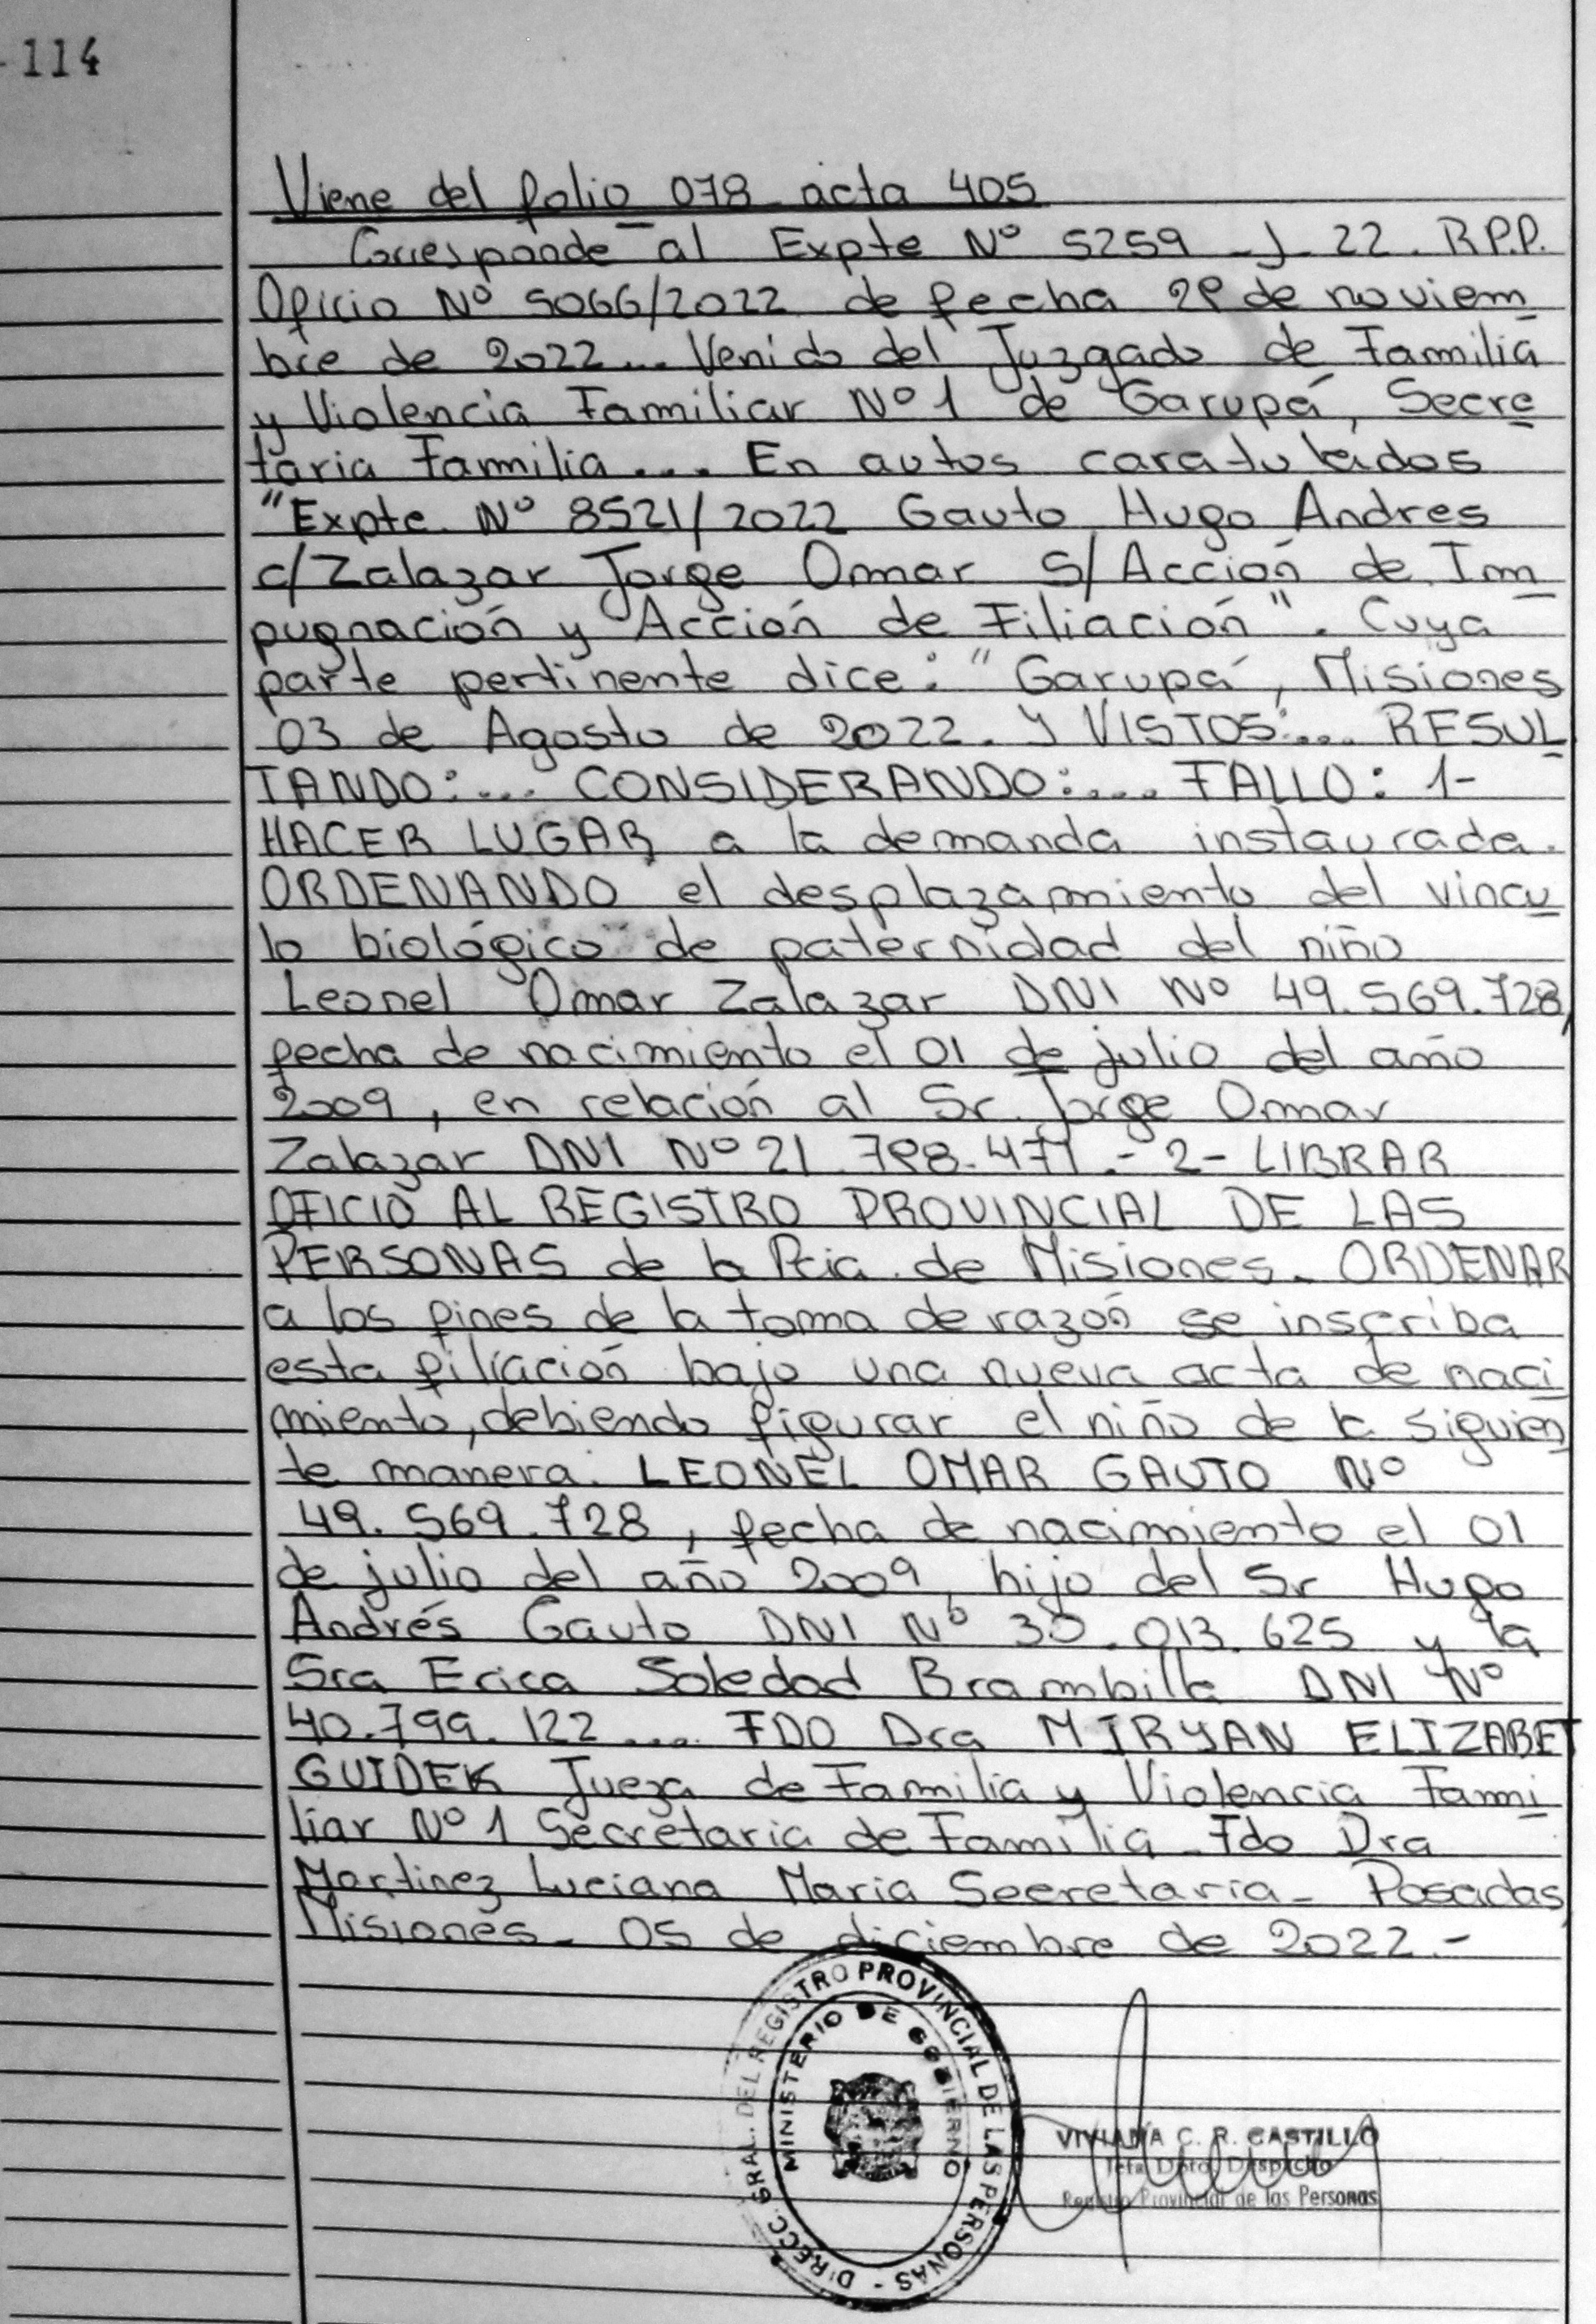 114
Viene del folio 078 acta 405
Corresponde al Expte Nº 5259 - J - 22. R.P.P.
Oficio Nº 5066/2022 de fecha 29 de noviem
bre de 2022... Venido del Juzgado de Familia
y Violencia Familiar Nº 1 de Garupá, Secre
taria Familia.... En autos caratulados
"Expte. Nº 8521/2022 Gauto Hugo Andres
c/ Zalazar Jorge Omar S/ Acción de Im
pugnación y Acción de Filiación". Cuya
parte pertinente dice: "Garupá, Misiones
03 de Agosto de 2022. Y VISTOS:.... RESUL
TANDO:... CONSIDERANDO:.... FALLO: 1-
HACER LUGAR a la demanda instaurada.
ORDENANDO el desplazamiento del vincu
lo biológico de paternidad del niño
Leonel Omar Zalazar DNI Nº 49.569.728,
fecha de nacimiento el 01 de julio del año
2009, en relación al Sr. Jorge Omar
Zalazar DNI Nº 21.798.471.- 2- LIBRAR
OFICIO AL REGISTRO PROVINCIAL DE LAS
PERSONAS de la Pcia. de Misiones. ORDENAR
a los fines de la toma de razón se inscriba
esta filiación bajo una nueva acta de naci
miento, debiendo figurar el niño de la siguien
te manera: LEONEL OMAR GAUTO Nº
49.569.728, fecha de nacimiento el 01
de julio del año 2009, hijo del Sr Hugo
Andrés Gauto DNI Nº 30.013.625 y la
Sra Erica Soledad Brambilla DNI Nº
40.799.122.... FDO Dra MIRYAN ELIZABET
GUIDEK Jueza de Familia y Violencia Fami
liar Nº 1 Secretaria de Familia - Fdo Dra
Martinez Luciana Maria Secretaria - Posadas,
Misiones - 05 de diciembre de 2022.-
DIRECC. GRAL. DEL REGISTRO PROVINCIAL DE LAS PERSONAS -
MINISTERIO DE GOBIERNO
VIVIANA C. R. CASTILLO
Jefa Dpto. Despacho
Registro Provincial de las Personas